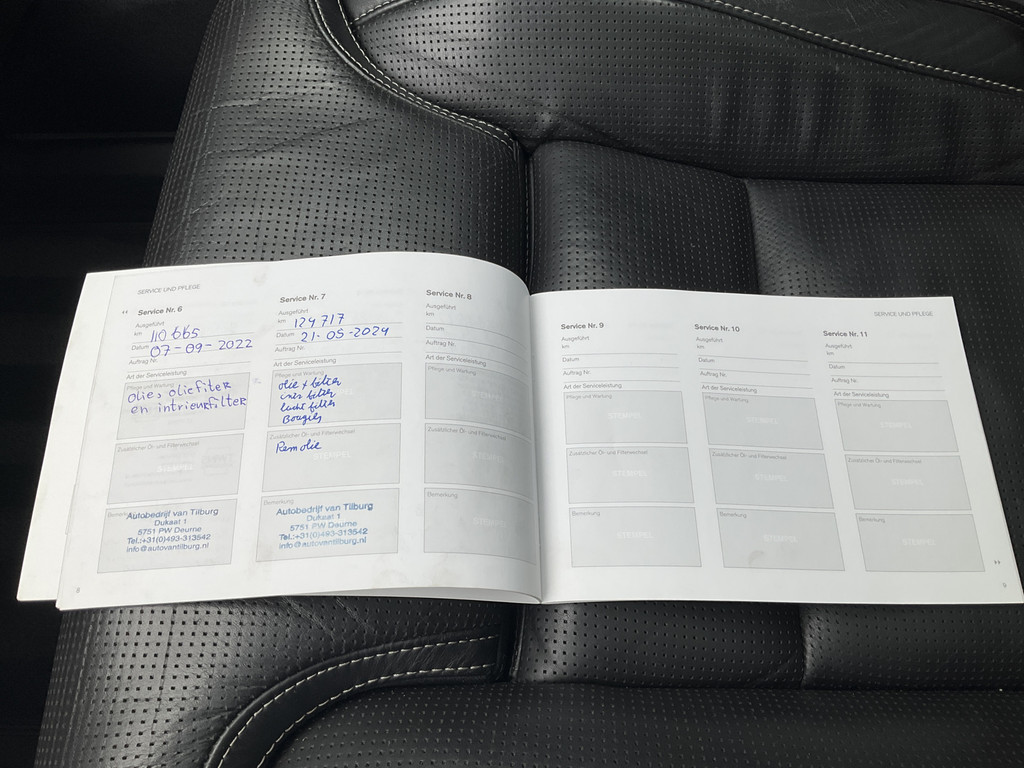 SERVICE UND PFLEGE
Service Nr. 6
Ausgeführt
km 110 665
Datum 07-09-2022
Auftrag Nr.
Art der Serviceleistung
Pflege und Wartung
olie, oliefilter
en intrieurfilter
Zusätzlicher Öl- und Filterwechsel
STEMPEL
Bemerkung
Autobedrijf van Tilburg
Dukaat 1
5751 PW Deurne
Tel.:+31(0)493-313542
info@autovantilburg.nl
8
Service Nr. 7
Ausgeführt
km 124717
Datum 21-05-2024
Auftrag Nr.
Art der Serviceleistung
Pflege und Wartung
olie + filter
lucht filter
Bougies
Zusätzlicher Öl- und Filterwechsel
Remolie
STEMPEL
Bemerkung
Autobedrijf van Tilburg
Dukaat 1
5751 PW Deurne
Tel.:+31(0)493-313542
info@autovantilburg.nl
Service Nr. 8
Ausgeführt
km
Datum
Auftrag Nr.
Art der Serviceleistung
Pflege und Wartung
Zusätzlicher Öl- und Filterwechsel
Bemerkung
SERVICE UND PFLEGE
Service Nr. 9
Ausgeführt
km
Datum
Auftrag Nr.
Art der Serviceleistung
Pflege und Wartung
STEMPEL
Zusätzlicher Öl- und Filterwechsel
STEMPEL
Bemerkung
STEMPEL
Service Nr. 10
Ausgeführt
km
Datum
Auftrag Nr.
Art der Serviceleistung
Pflege und Wartung
STEMPEL
Zusätzlicher Öl- und Filterwechsel
STEMPEL
Bemerkung
STEMPEL
Service Nr. 11
Ausgeführt
km
Datum
Auftrag Nr.
Art der Serviceleistung
Pflege und Wartung
STEMPEL
Zusätzlicher Öl- und Filterwechsel
STEMPEL
Bemerkung
STEMPEL
9